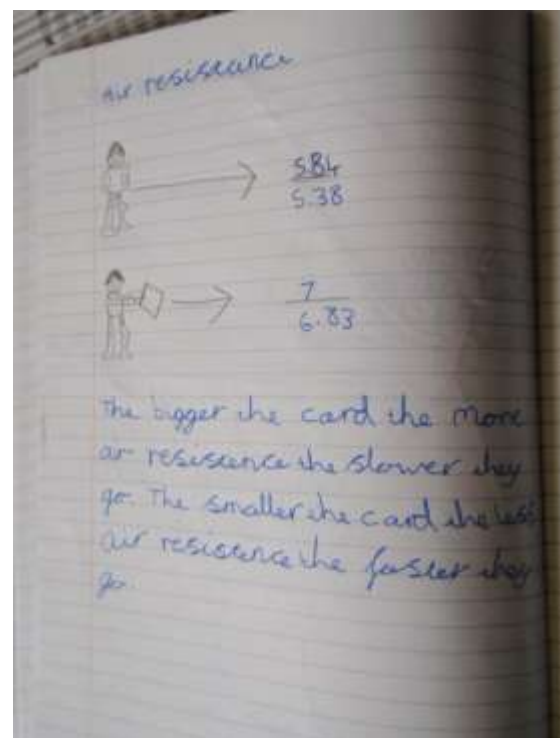 Air resistance
5.84
5.38
7
6.83
The bigger the card the more
air resistance the slower they
go. The smaller the card the less
air resistance the faster they
go.